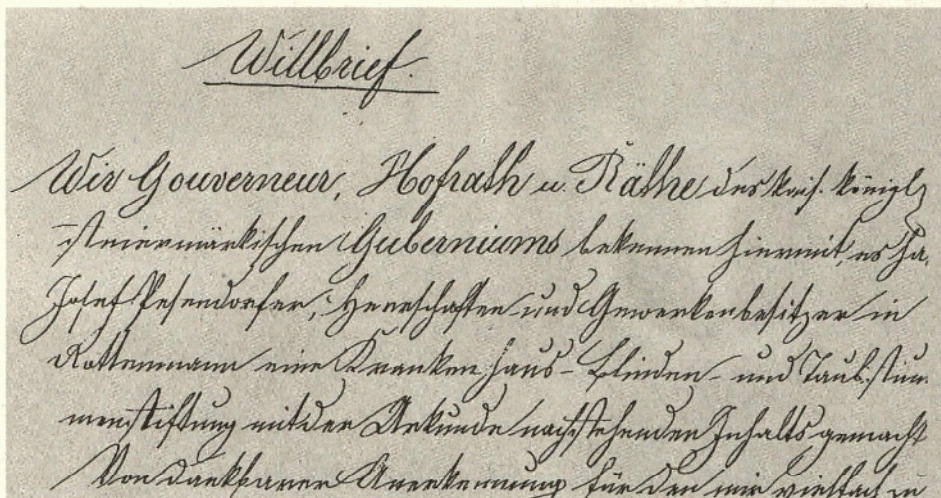 Willbrief.
Wir Gouverneur, Hofrath u. Räthe des kais. königl.
steiermärkischen Guberniums bekennen hiermit, es ha.
Josef Pesendorfer, Herrschaften und Gewerkenbesitzer in
Rottenmann eine Krankenhaus- Blinden- und Taubstum
menstiftung mit der Urkunde nachstehenden Inhalts gemacht
Von dankbarer Anerkennung für den mir vielfach zu